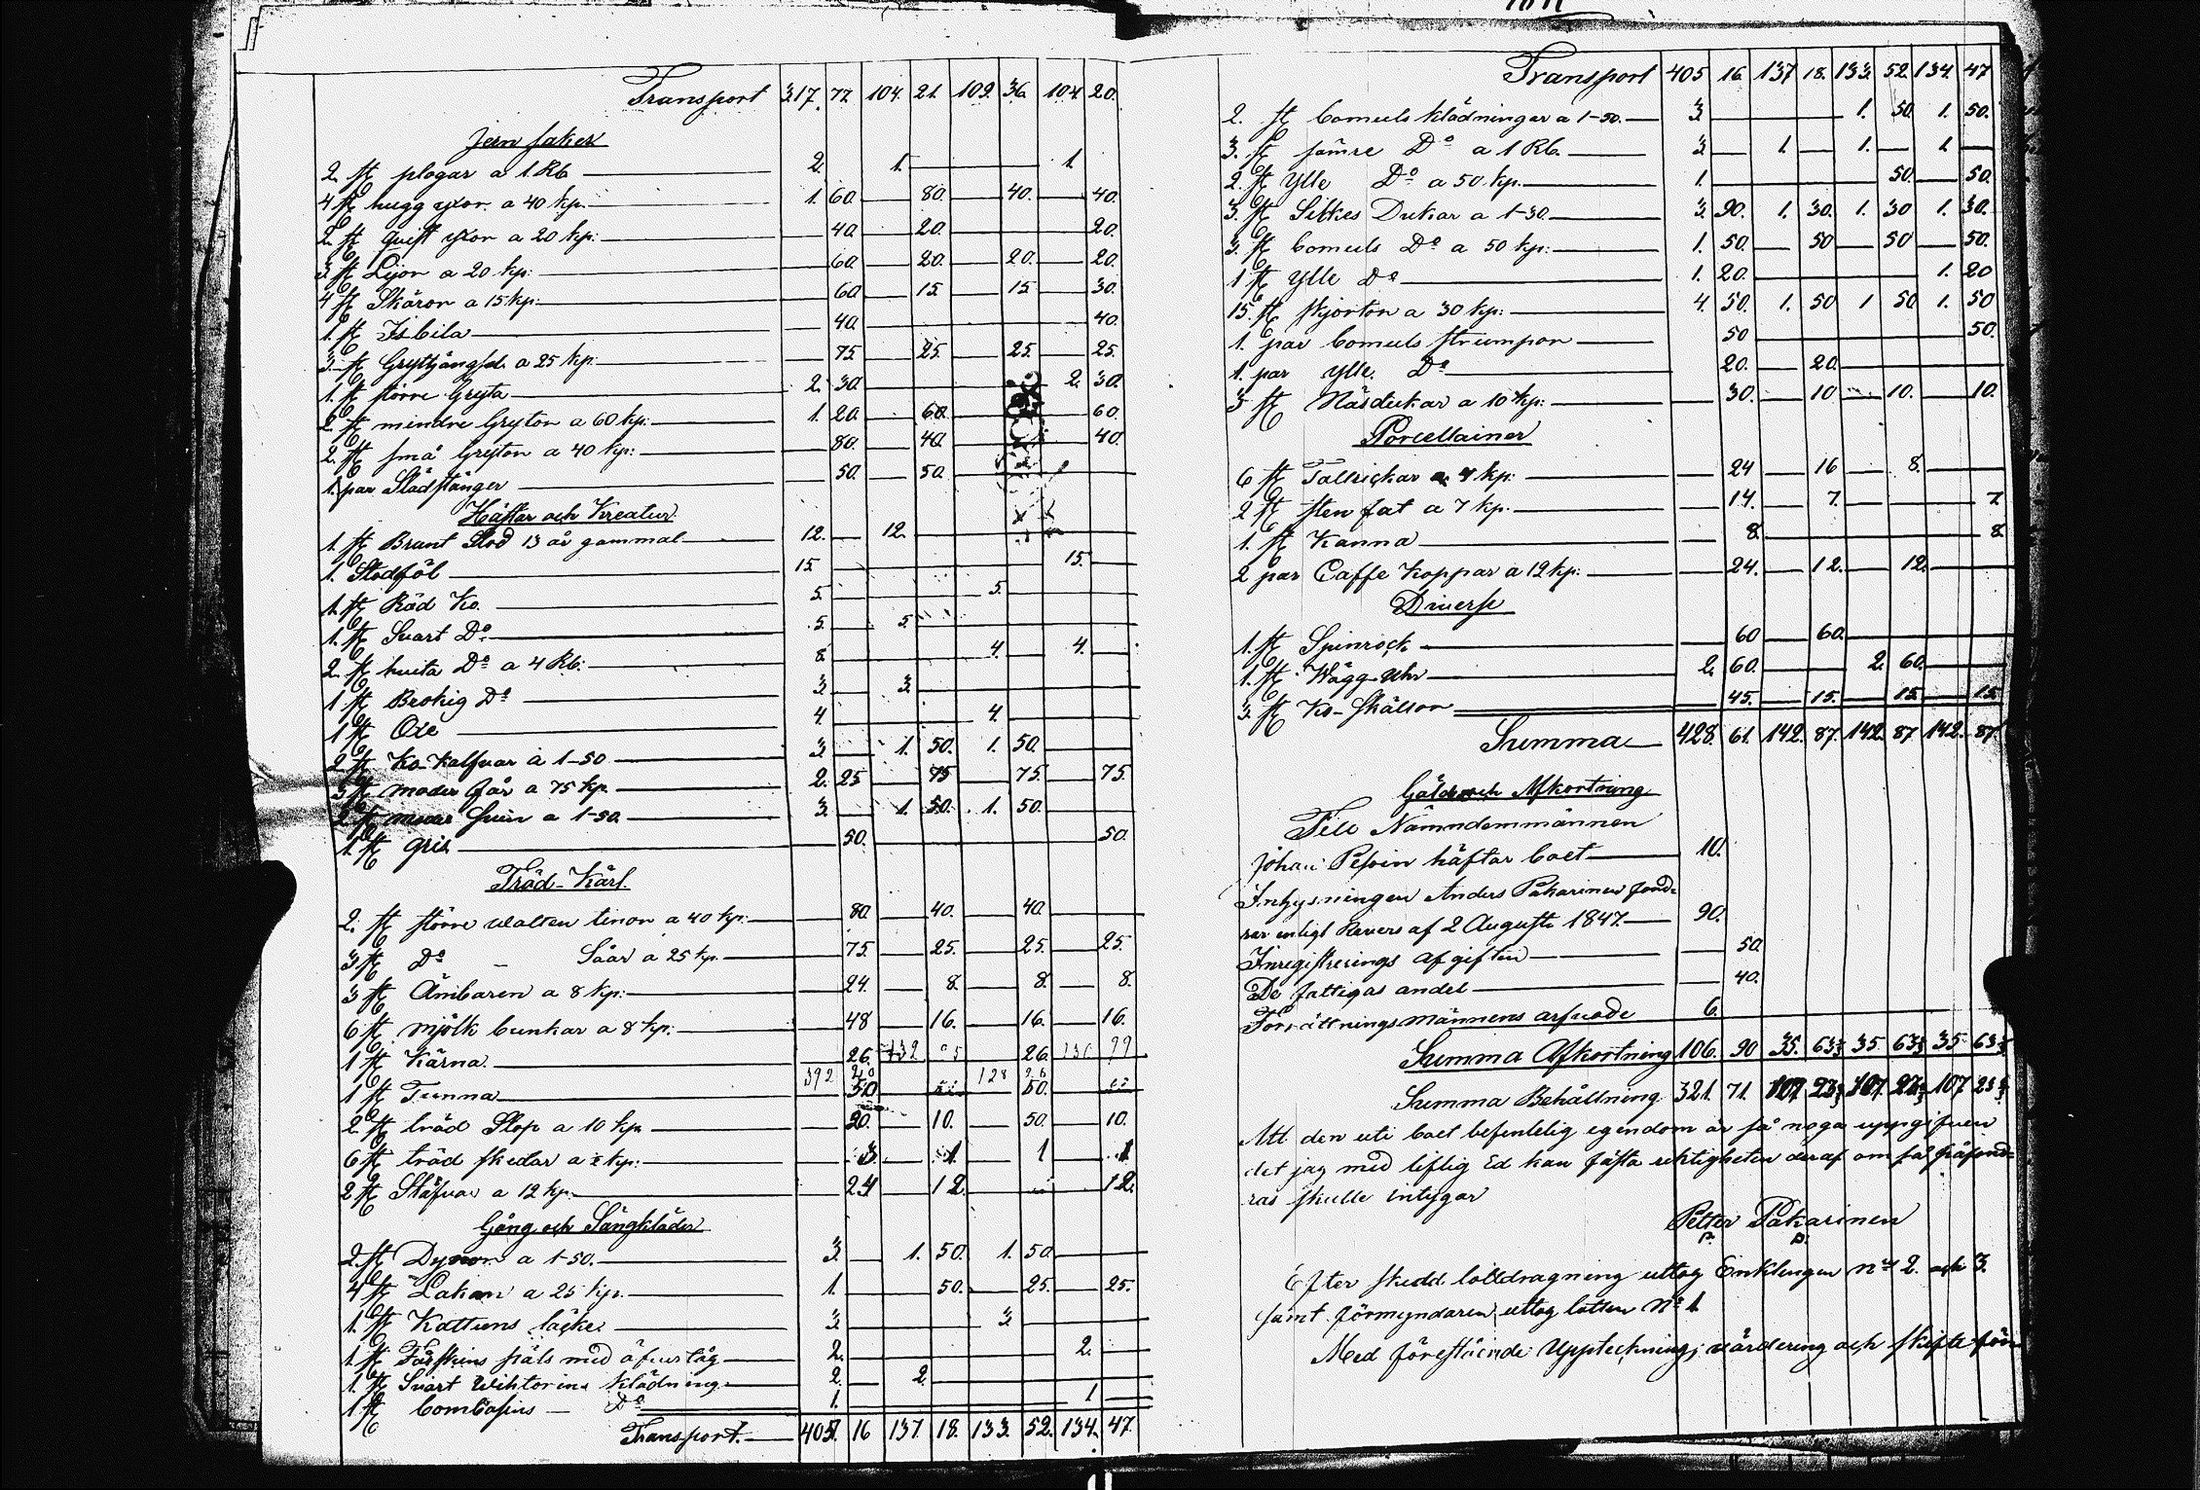 Transport 317. 77. 104. 21. 109. 36. 104. 20.
Jern saker
2. st plogar a 1 Rb 2. 1. 1.
4 st hugg yxor a 40 kp. 1. 60. 80. 40. 40.
2. st quist yxor a 20 kp: 40 20. 20.
3 st Lijor a 20 kp: 60. 20. 20. 20.
4 st Skäror a 15 kp: 60 15. 15. 30.
1. st Isbila 40. 40.
3 st a 25 kp. 75 25. 25. 25.
1. st större Gryta 2. 30 2. 30.
2 st mindre Gryton a 60 kp: 1. 20. 60. 60.
2. st små Gryton a 40 kp: 80. 40. 40.
1. par Städstänger 50. 50.
Hästar och Kreatur.
1. st Brunt Stod 13 år gammal 12. 12.
1. Stodföl 15. 15.
1. st Röd Ko. 5. 5.
1. st Svart Do 5. 5.
2. st huita Do a 4 Rb: 8. 4. 4.
1 st Brokig Do 3. 3.
1 st Oxe 4. 4.
2 st Ko-Kalfvar a 1-50 3 1. 50. 1. 50.
3 st moder får a 75 kp 2. 25 75 75. 75.
2 st moder Suin a 1-50. 3. 1. 50. 1. 50.
1. st gris 50. 50.
Träd-Kärl.
2. st större watten tinor a 40 kp: 80. 40. 40.
3 st Do - Såar a 25 kp. 75. 25. 25. 25
3 st Ämbaren a 8 kp: 24. 8. 8. 8.
6 st mjölk bunkar a 8 kp: 48 16. 16. 16.
1 st Kärna 26. 132 26. 99
392 20 128
1 st Tunna 50 50.
2 st träd Stop a 10 kp 20. 10. 50. 10.
6 st träd skedar a ½ kp: 3. 1 1 1
2 st Stäfvor a 12 kp. 24 12. 12.
Gång och Sängkläder
2 st Dynor a 1-50. 3. 1. 50. 1. 50
4 st Lakan a 25 kp. 1. 50. 25. 25.
1. st Kattuns täcke 3. 3.
1 st Fårskins päls med öfvertåg 2. 2.
1. st Svart Wiktorins klädning 2. 2.
1 st Combasins — Do 1. 1
Transport. 405. 16 137. 18. 133. 52. 134. 47.
Transport 405 16. 137 18. 133. 52. 134. 47
2. st bomuls klädningar a 1-50. 3 1. 50. 1. 50.
3. st sämre Do a 1 Rb. 3 1. 1. 1
2. st Ylle Do a 50 kp. 1. 50. 50.
3. st Silkes Dukar a 1-30. 3. 90. 1. 30. 1. 30 1. 30.
3. st bomuls Do a 50 kp: 1. 50. 50 50 50.
1 st Ylle Do 1. 20. 1. 20
15. st skjorton a 30 kp: 4. 50. 1. 50 1 50 1. 50
1. par bomuls strumpor 50 50.
1. par ylle. Do 20. 20.
3 st Näsdukar a 10 kp: 30. 10 10. 10.
Porcellainer
6 st Tallrickar a 4 kp: 24 16 8.
2 st sten fat a 7 kp. 14. 7. 7
1. st Kanna 8. 8
2 par Caffe Koppar a 12 kp: 24. 12. 12.
Diverse
1. st Spinrock 60 60.
1. st Wägg Uhr 2. 60. 2. 60.
3. st Ko-skällor 45. 15. 15. 15
Summa 428. 61. 142. 87. 142. 87 142. 87.
Gäld och Afkortning
Till Nämndemmännen
Johan häftar boet 10.
Inhysningen Anders Pakarinen fond-
rar enligt Revers af 2 Augusti 1847. 90.
Inregistrerings afgiften 50.
De fattigas andel 40.
Förrättnings männens arfvode 6.
Summa Afkortning 106. 90 35. 63⅓ 35 63⅓ 35 63⅓
Summa Behållning 321. 71. 107. 23⅔ 107. 23⅔ 107 23⅔
Att den uti boet befintelig egendom är så noga uppgifven
det jag med liflig Ed kan fästa riktigheten deraf om så påfond-
ras skulle intygar
Petter Pakarinen
Efter skedd lottdragning uttog Enklingen No 2. och 3.
samt förmyndaren uttog lotten No 1.
Med förestående Uppteckning, värdering och skifte för-